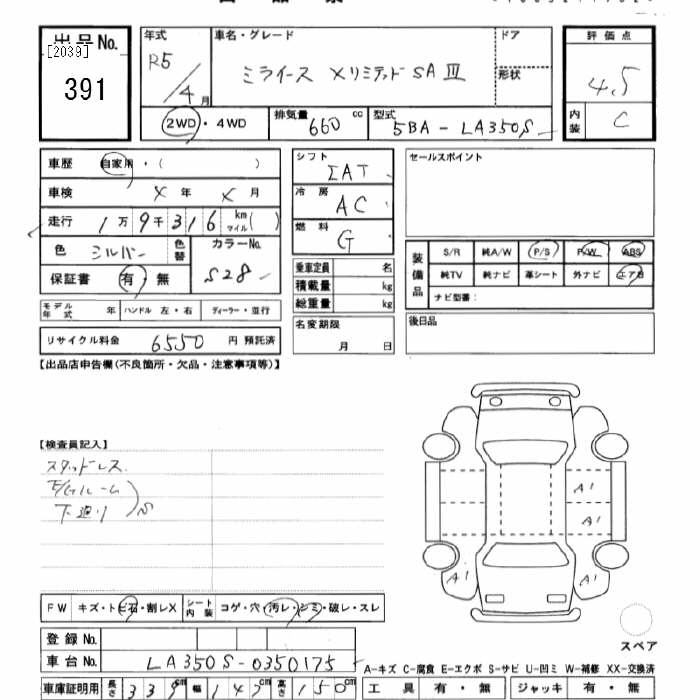 出品No.
[2039]
391
年式
R5/4月
車名・グレード
ミライース XリミテッドSAⅢ
ドア
形状
2WD・4WD
排気量 660 cc
型式 5BA-LA350S
評価点
4.5
内装 C
車歴 自家用・( )
車検 X年 X月
走行 1万9千316 km マイル( )
色 シルバー 色替
カラーNo. S28
保証書 有・無
モデル年式 年 ハンドル 左・右 ディーラー・並行
リサイクル料金 6550 円 預託済
シフト IAT
冷房 AC
燃料 G
乗車定員 名
積載量 kg
総重量 kg
名変期限
月 日
セールスポイント
装備品
S/R 純A/W P/S P/W ABS
純TV 純ナビ 革シート 外ナビ エアB
ナビ型番:
後日品
【出品店申告欄(不良箇所・欠品・注意事項等)】
【検査員記入】
スタッドレス
E/Gルーム
下廻り S
A1
A1
A1
A1
FW キズ・トビ石・割レX
シート内装 コゲ・穴・汚レ・シミ・破レ・スレ
スペア
登録No.
車台No. LA350S-0350175
A-キズ C-腐食 E-エクボ S-サビ U-凹ミ W-補修 XX-交換済
車庫証明用 長さ 339cm 幅 147cm 高さ 150cm
工具 有・無 ジャッキ 有・無